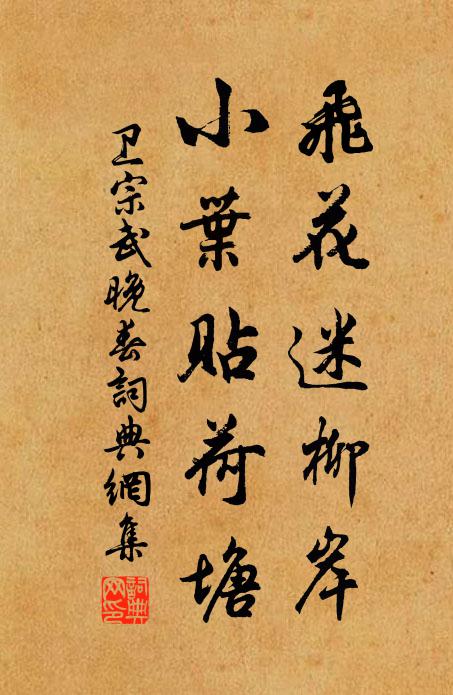 飛花迷柳岸
小葉貼荷塘
卫宗武晚春詞典網集
詞典網印